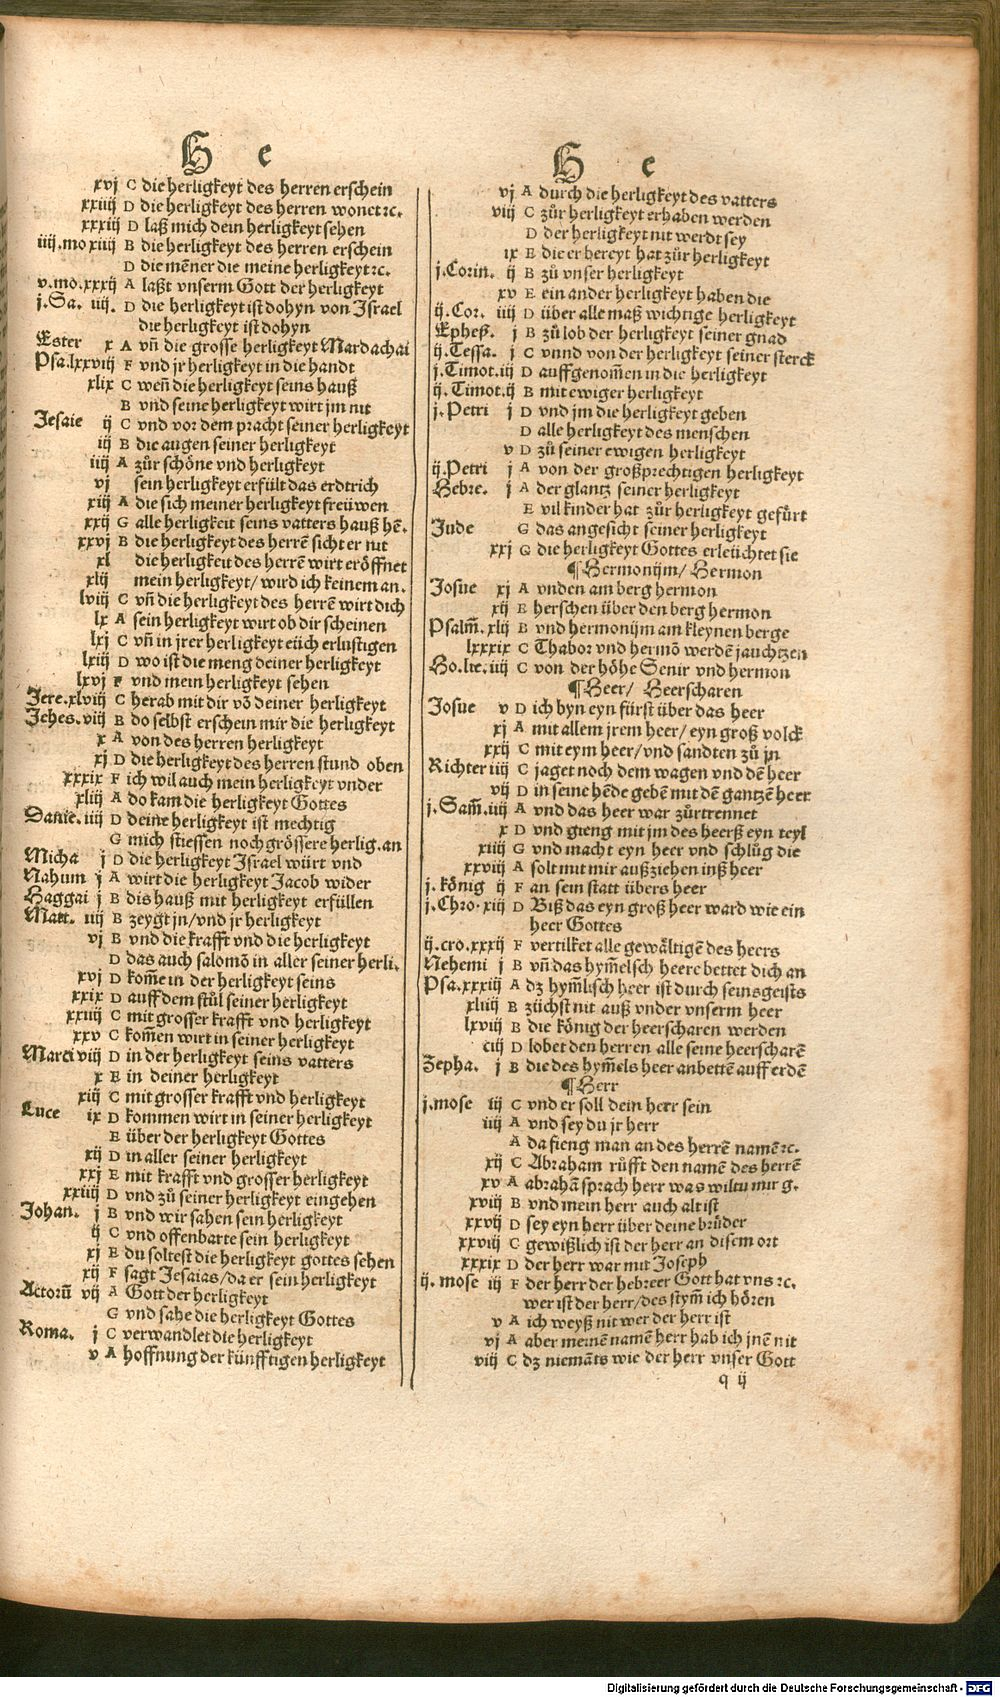 H e
xvj C die herligkeyt des herren erschein
xxiiij D die herligkeyt des herren wonet ⁊c.
xxxiij D laß mich dein herligkeyt sehen
iiij.mo xiiij B die herligkeyt des herren erschein
D die mēner die meine herligkeyt ⁊c.
v.mo.xxxij A laßt vnserm Gott der herligkeyt
j.Sa. iiij. D die herligkeyt ist dohyn von Israel
die herligkeyt ist dohyn
Ester x A vn̄ die grosse herligkeyt Mardachai
Psa.lxxviij F vnd jr herligkeyt in die handt
xlix C wen̄ die herligkeyt seins hauß
B vnd seine herligkeyt wirt jm nit
Jesaie ij C vnd vor dem pracht seiner herligkeyt
iij B die augen seiner herligkeyt
iiij A zůr schöne vnd herligkeyt
vj sein herligkeyt erfült das erdtrich
xiij A die sich meiner herligkeyt freüwen
xxij G alle herligkeit seins vatters hauß hē.
xxvj B die herligkeyt des herrē sicht er nit
xl die herligkeit des herrē wirt eröffnet
xlij mein herligkeyt/ wird ich keinem an.
lviij C vn̄ die herligkeyt des herrē wirt dich
lx A sein herligkeyt wirt ob dir scheinen
lxj C vn̄ in jrer herligkeyt eüch erlustigen
lxiij D wo ist die meng deiner herligkeyt
lxvj F vnd mein herligkeyt sehen
Jere.xlviij C herab mit dir vō deiner herligkeyt
Jehes.viij B do selbst erschein mir die herligkeyt
x A von des herren herligkeyt
xj D die herligkeyt des herren stund oben
xxxix F ich wil auch mein herligkeyt vnder
xliij A do kam die herligkeyt Gottes
Danie. iiij D deine herligkeyt ist mechtig
G mich stiessen noch grössere herlig.an
Micha j D die herligkeyt Israel würt vnd
Nahum j A wirt die herligkeyt Jacob wider
Haggai j B dis hauß mit herligkeyt erfüllen
Matt. iiij B zeygt jn/vnd jr herligkeyt
vj B vnd die krafft vnd die herligkeyt
D das auch salomō in aller seiner herli.
xvj D kom̄e in der herligkeyt seins
xxix D auff dem stůl seiner herligkeyt
xxiiij C mit grosser krafft vnd herligkeyt
xxv C kom̄en wirt in seiner herligkeyt
Marci viij D in der herligkeyt seins vatters
x E in deiner herligkeyt
xiij C mit grosser krafft vnd herligkeyt
Luce ix D kommen wirt in seiner herligkeyt
E über der herligkeyt Gottes
xij D in aller seiner herligkeyt
xxj E mit krafft vnd grosser herligkeyt
xxiiij D vnd zů seiner herligkeyt eingehen
Johan. j B vnd wir sahen sein herligkeyt
ij C vnd offenbarte sein herligkeyt
xj E du soltest die herligkeyt gottes sehen
xij F sagt Jesaias/da er sein herligkeyt
Actorū vij A Gott der herligkeyt
G vnd sahe die herligkeyt Gottes
Roma. j C verwandlet die herligkeyt
v A hoffnung der künfftigen herligkeyt
H e
vj A durch die herligkeyt des vatters
viij C zůr herligkeyt erhaben werden
D der herligkeyt nit werdt sey
ix E die er bereyt hat zůr herligkeyt
j.Corin. ij B zů vnser herligkeyt
xv E ein ander herligkeyt haben die
ij.Cor. iiij D über alle maß wichtige herligkeyt
Ephes. j B zů lob der herligkeyt seiner gnad
ij.Tessa. j C vnnd von der herligkeyt seiner sterck
j.Timot.iij D auffgenom̄en in die herligkeyt
ij.Timot.ij B mit ewiger herligkeyt
j.Petri j D vnd jm die herligkeyt geben
D alle herligkeyt des menschen
v D zů seiner ewigen herligkeyt
ij.Petri j A von der großprechtigen herligkeyt
Hebre. j A der glantz seiner herligkeyt
E vil kinder hat zůr herligkeyt gefürt
Jude G das angesicht seiner herligkeyt
xxj G die herligkeyt Gottes erleüchtet sie
¶Hermonijm/ Hermon
Josue xj A vnden am berg hermon
xij E herschen über den berg hermon
Psalm̄. xlij B vnd hermonijm am kleynen berge
lxxxix C Thabor vnd hermō werdē jauchtzen
Ho.lie.iiij C von der höhe Senir vnd hermon
¶Heer/ Heerscharen
Josue v D ich byn eyn fürst über das heer
xj A mit allem jrem heer/ eyn groß volck
xxij C mit eym heer/vnd sandten zů jn
Richter iiij C jaget noch dem wagen vnd dē heer
vij D in seine hēde gebē mit dē gantzē heer
j.Sam̄.iiij A vnd das heer war zůrtrennet
x D vnd gieng mit jm des heerß eyn teyl
xiiij G vnd macht eyn heer vnd schlůg die
xxviij A solt mit mir außziehen inß heer
j.könig ij F an sein statt übers heer
j.Chro.xiij D Biß das eyn groß heer ward wie ein
heer Gottes
ij.cro.xxxij F vertilket alle gewåltigē des heers
Nehemi j B vn̄ das hym̄elsch heere bettet dich an
Psa.xxxiij A dz hym̄lisch heer ist durch seins geists
xliiij B züchst nit auß vnder vnserm heer
lxviij B die könig der heerscharen werden
ciij D lobet den herren alle seine heerscharē
Zepha. j B die des hym̄els heer anbettē auff erdē
¶Herr
j.mose iij C vnd er soll dein herr sein
iiij A vnd sey du jr herr
A da fieng man an des herrē namē ⁊c.
xij C Abraham rüfft den namē des herrē
xv A abrahā sprach herr was wiltu mir g.
xviij B vnd mein herr auch alt ist
xxvij D sey eyn herr über deine brůder
xxviij C gewißlich ist der herr an disem ort
xxxix D der herr war mit Joseph
ij. mose iij F der herr der hebreer Gott hat vns ⁊c.
wer ist der herr/des stym̄ ich hören
v A ich weyß nit wer der herr ist
vj A aber meinē namē herr hab ich jnē nit
viij C dz niemāts wie der herr vnser Gott
q ij
Digitalisierung gefördert durch die Deutsche Forschungsgemeinschaft - DFG